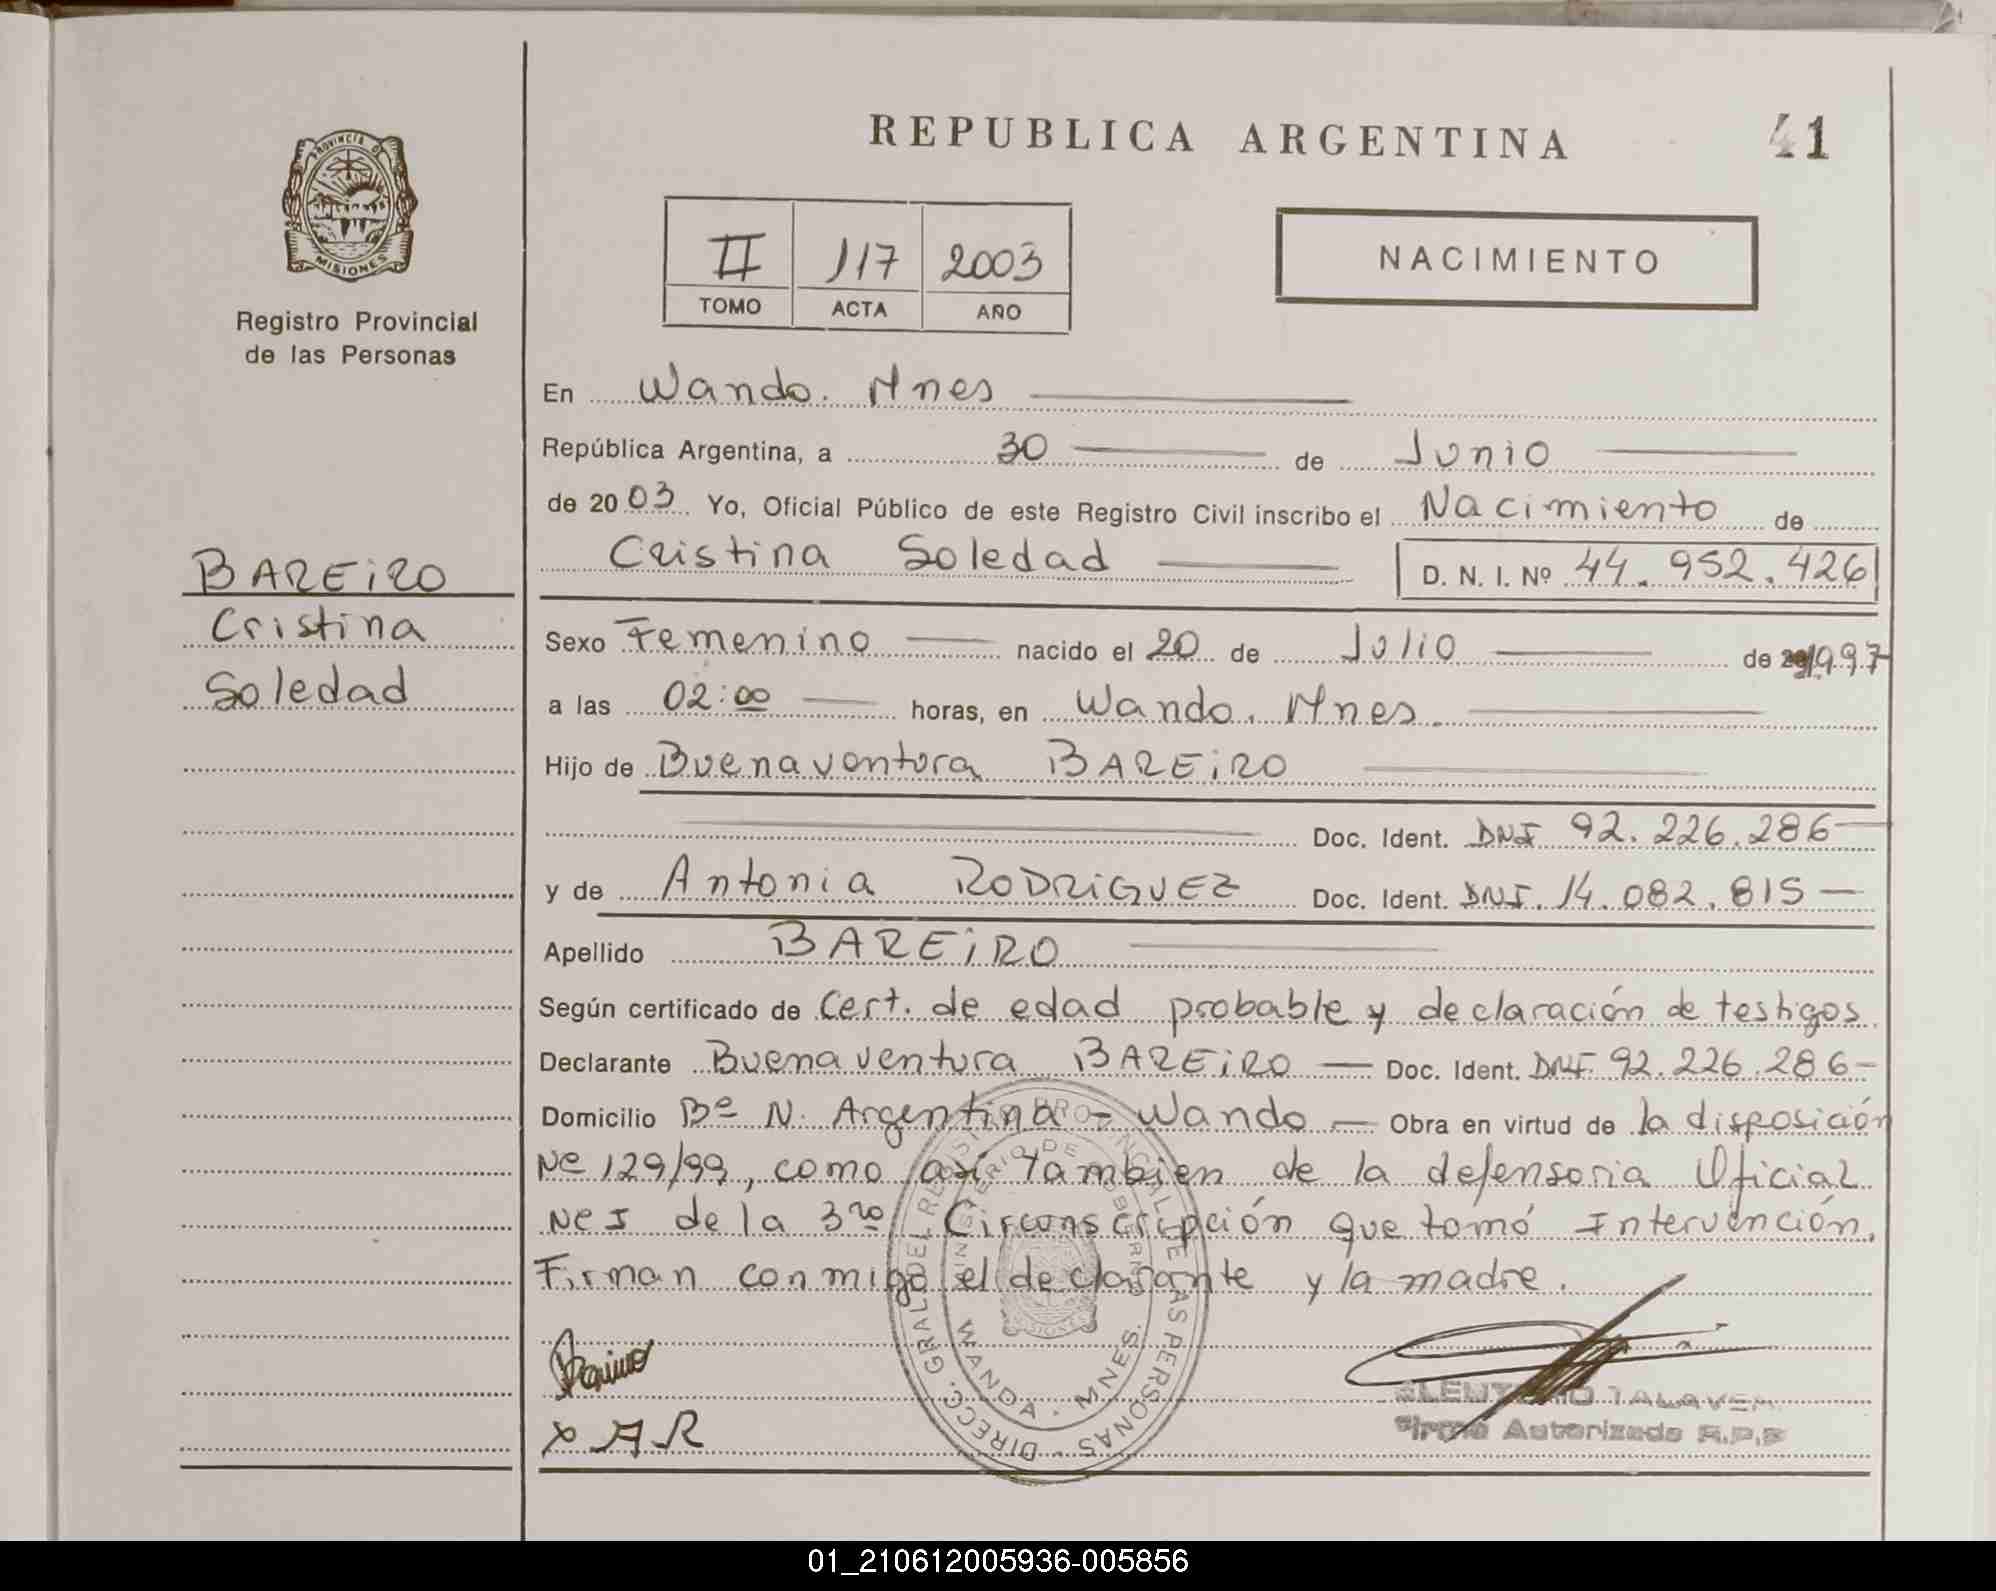 REPUBLICA ARGENTINA
41
PROVINCIA DE
MISIONES
Registro Provincial
de las Personas
II 117 2003
TOMO ACTA AÑO
NACIMIENTO
En Wanda. Mnes
República Argentina, a 30 de Junio
de 2003 Yo, Oficial Público de este Registro Civil inscribo el Nacimiento de
Cristina Soledad D. N. I. Nº 44.952.426
BAREiRO
Cristina
Soledad
Sexo Femenino nacido el 20 de Julio de 1997
a las 02:00 horas, en Wanda. Mnes.
Hijo de Buenaventura BAREiRO
Doc. Ident. DNI 92.226.286
y de Antonia RODRiGUEZ Doc. Ident. DNI. 14.082.815
Apellido BAREiRO
Según certificado de Cert. de edad probable y declaración de testigos.
Declarante Buenaventura BAREiRO Doc. Ident. DNI. 92.226.286
Domicilio Bº N. Argentina - Wanda Obra en virtud de la disposición
Nº 129/99, como asi tambien de la defensoria Oficial
Nº I de la 3ra Circonscripción que tomó Intervención.
Firman conmigo el declarante y la madre.
x AR
DIRECC. GRAL. DEL REGISTRO PROVINCIAL DE LAS PERSONAS
MINISTERIO DE GOBIERNO
WANDA - MNES.
MISIONES
Firma Autorizada R.P.P
01_210612005936-005856